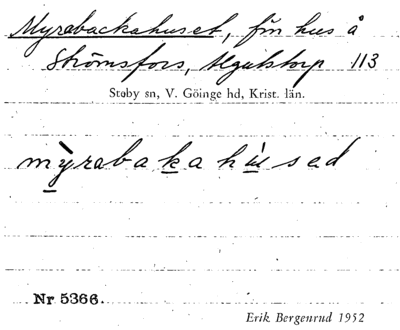 Myrabackahuset, f.n hus å
Strömsfors, Algustorp 113
Stoby sn, V. Göinge hd, Krist. län.
mỳrabakahúsad
Nr 5366.
Erik Bergenrud 1952